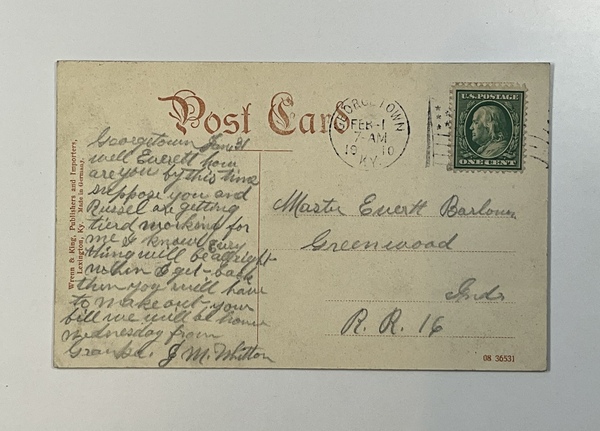 Post Card
GEORGETOWN
FEB-1
7-AM
1910
KY.
U.S. POSTAGE
ONE CENT
Wrenn & King, Publishers and Importers,
Lexington, Ky. Made in Germany.
Georgetown Jan 31
well Everett how
are you by this time
suppose you and
Russel are getting
tierd working for
me I know Evry
thing will be allright
when I get back
then you will have
to make out your
bill we will be home
wednesday from
Granpa. J M. Whitton
Master Everett
Greenwood
Ind
R. R. 16
08 36531